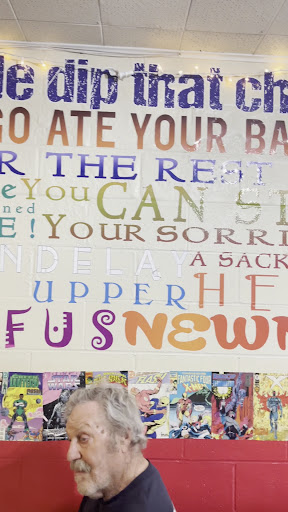 le dip that ch
GO ATE YOUR BA
R THE REST
e You CAN SI
ned
E! YOUR SORRI
NDELAY A SACK
UPPER HE
FUS NEWM